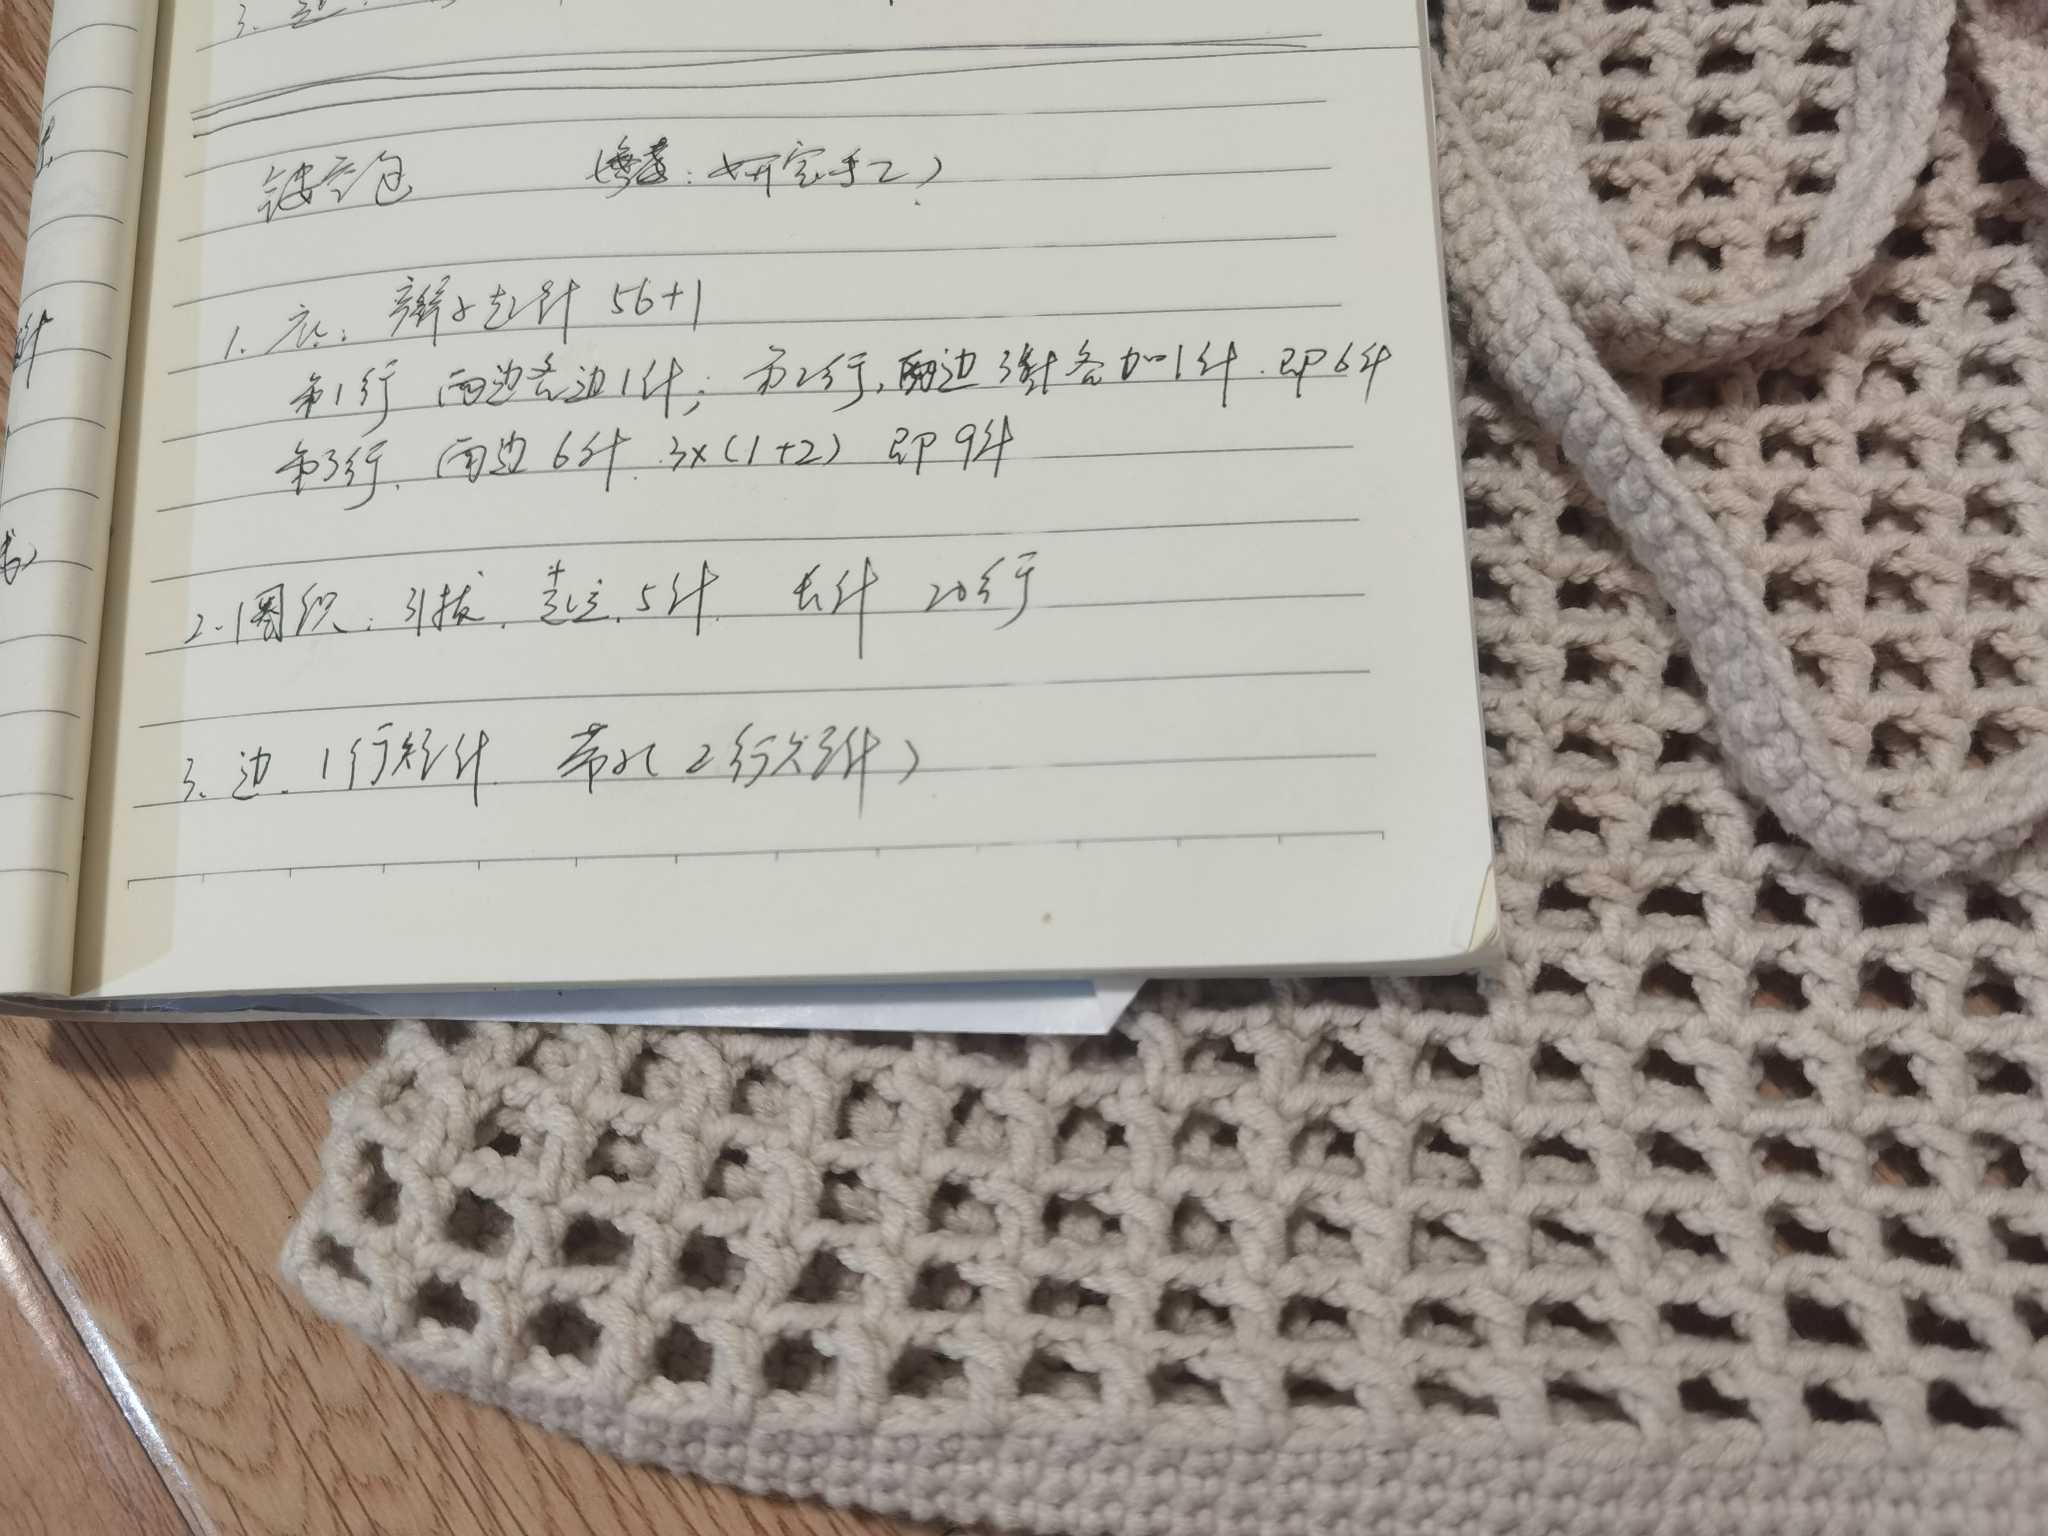 镂空包 : 妍宝手工)
1. 底: 辫子起针 56+1
第1行 两边各边1针; 第2行, 两边3针各加1针. 即6针
第3行. 两边6针. 3×(1+2) 即9针
2. 圈织: 引拔. 起立. 5针. 长针 20行
3. 边. 1行短针. 带孔 2行短针)